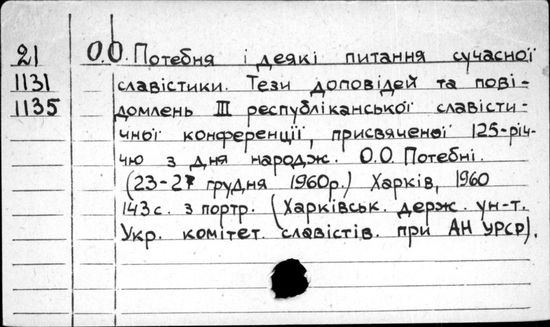 21 О.О. Потебня і деякі питання сучасної
1131 славістики. Тези доповідей та пові-
1135 домлень III республіканської славісти-
чної конференції, присвяченої 125-річ-
чю з дня народж. О.О. Потебні.
(23-27 грудня 1960р.) Харків, 1960
143с. з портр. (Харківськ. держ. ун-т.
Укр. комітет. славістів. при АН УРСР).